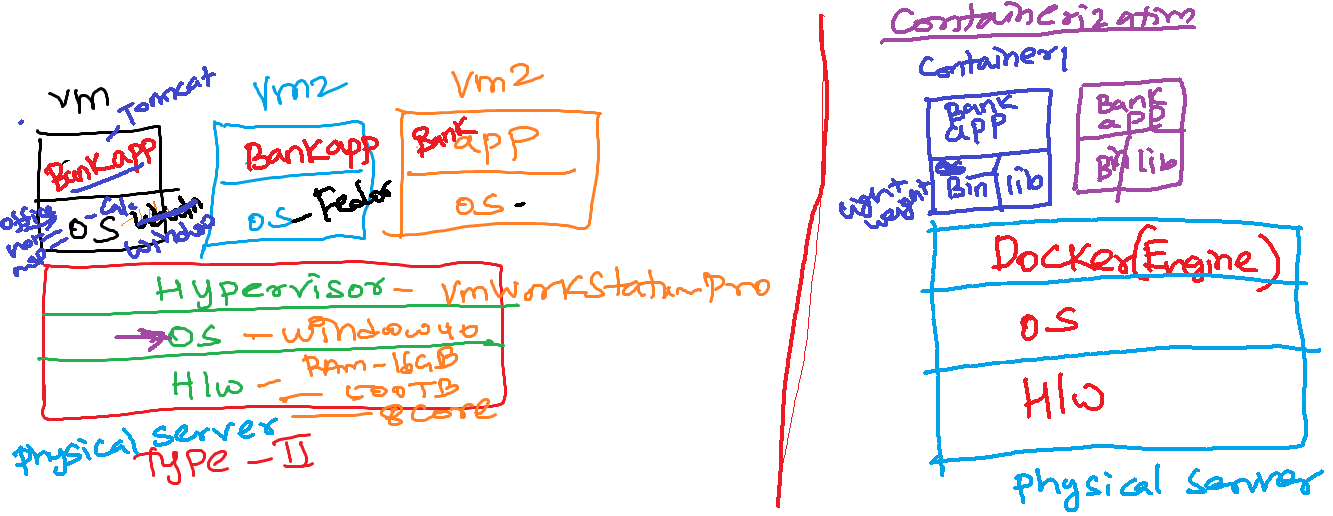 vm
Tomcat
Bank app
OS
vm2
Bank app
OS - Fedor
vm2
Bank app
OS
Hypervisor - vmworkstation pro
OS -
H/W - RAM - 16GB
500TB
8 core
Physical server
Type - II
Containerization
Container1
Bank
app
Bin lib
Light
weight
Bank
app
Bin lib
Docker (Engine)
OS
H/W
Physical server